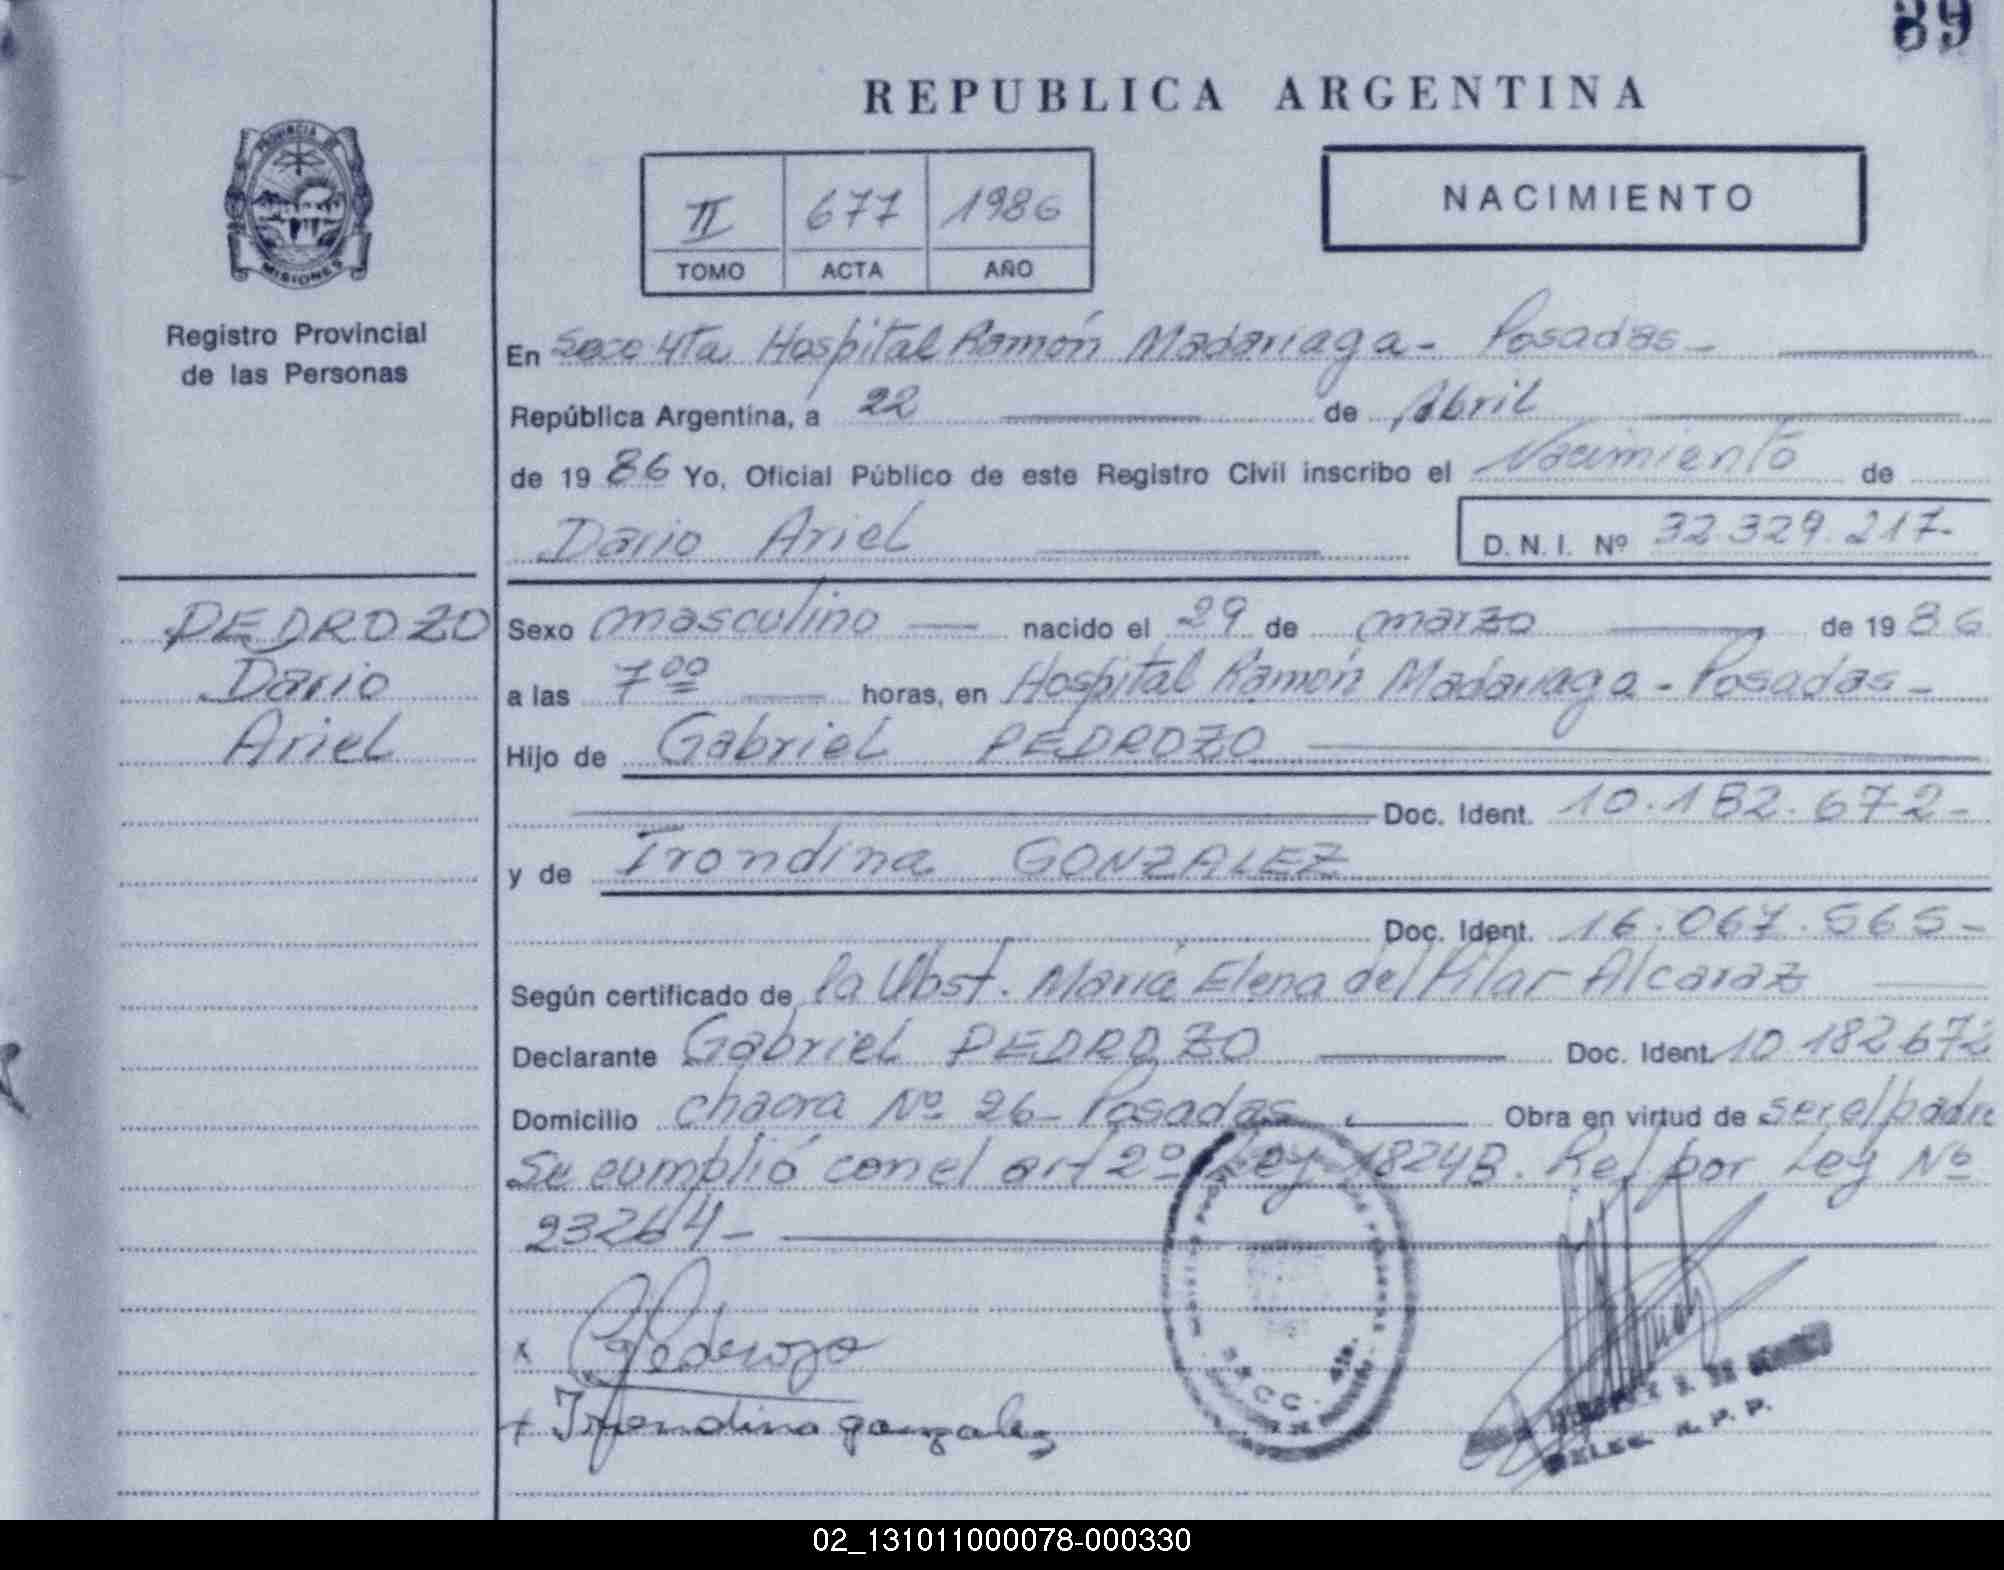 89
REPUBLICA ARGENTINA
PROVINCIA DE
MISIONES
II 677 1986
TOMO ACTA AÑO
NACIMIENTO
Registro Provincial
de las Personas
En Secc 4ta Hospital Ramón Madariaga - Posadas -
República Argentina, a 22 de Abril
de 1986 Yo, Oficial Público de este Registro Civil inscribo el Nacimiento de
Dario Ariel D. N. I. Nº 32.329.217-
PEDROZO
Dario
Ariel
Sexo masculino nacido el 29 de marzo de 1986
a las 7 00 horas, en Hospital Ramón Madariaga - Posadas -
Hijo de Gabriel PEDROZO
Doc. Ident. 10.182.672-
y de Irondina GONZALEZ
Doc. Ident. 16.067.565-
Según certificado de la Obst. Maria Elena del Pilar Alcaraz
Declarante Gabriel PEDROZO Doc. Ident. 10 182672
Domicilio chacra Nº 26 - Posadas Obra en virtud de ser el padre
Se cumplió con el art 2º Ley 18248. Ref por Ley Nº
23264 -
x G Pedrozo
+ Irondina gonzalez
DELEG. R. P. P.
02_131011000078-000330